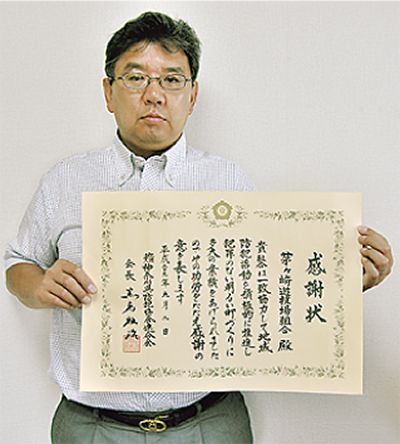 感謝状
茅ヶ崎遊技場組合 殿
貴聲は一致協力して地域
防犯活動を積極的に推進し
犯罪のない明るい町づくりに
多大の業績をあげられました
その功労をたたえ感謝の
意を表します
平成 年九月 日
神奈川県防犯協会連合会
会長